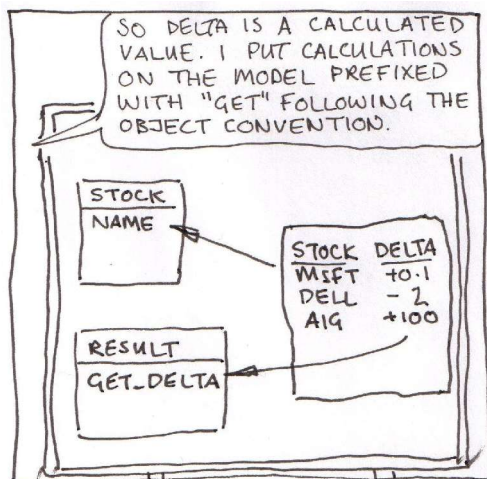 SO DELTA IS A CALCULATED
VALUE. I PUT CALCULATIONS
ON THE MODEL PREFIXED
WITH "GET" FOLLOWING THE
OBJECT CONVENTION.
STOCK
NAME
STOCK DELTA
MSFT +0.1
DELL - 2
AIG +100
RESULT
GET_DELTA